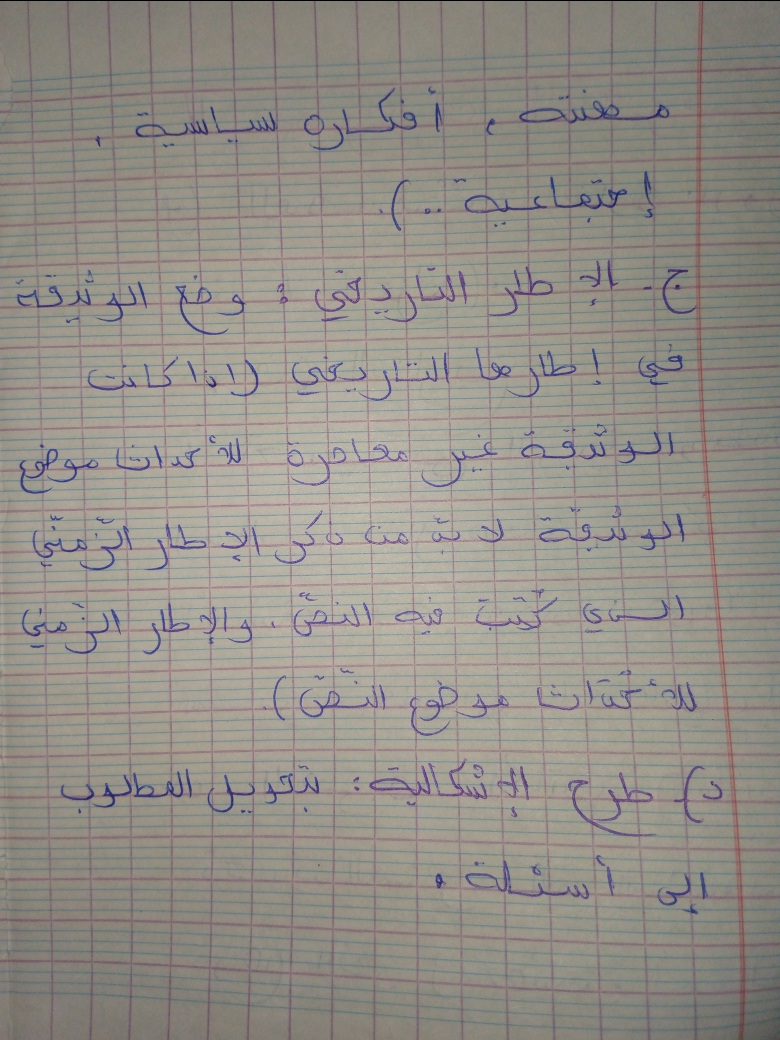 مهنته ، أفكاره سياسية ،
إجتماعية ..).
ج- الإطار التاريخي : وضع الوثيقة
في إطارها التاريخي (إذا كانت
الوثيقة غير معاصرة للأحداث موضوع
الوثيقة لا بدّ من ذكر الإطار الزّمنّي
الذي كُتِبَ فيه النصّ ، والإطار الزّمني
للأحْدَاث موضوع النّصّ).
د) طرح الإشكالية : بتحويل المطلوب
إلى أسئلة .